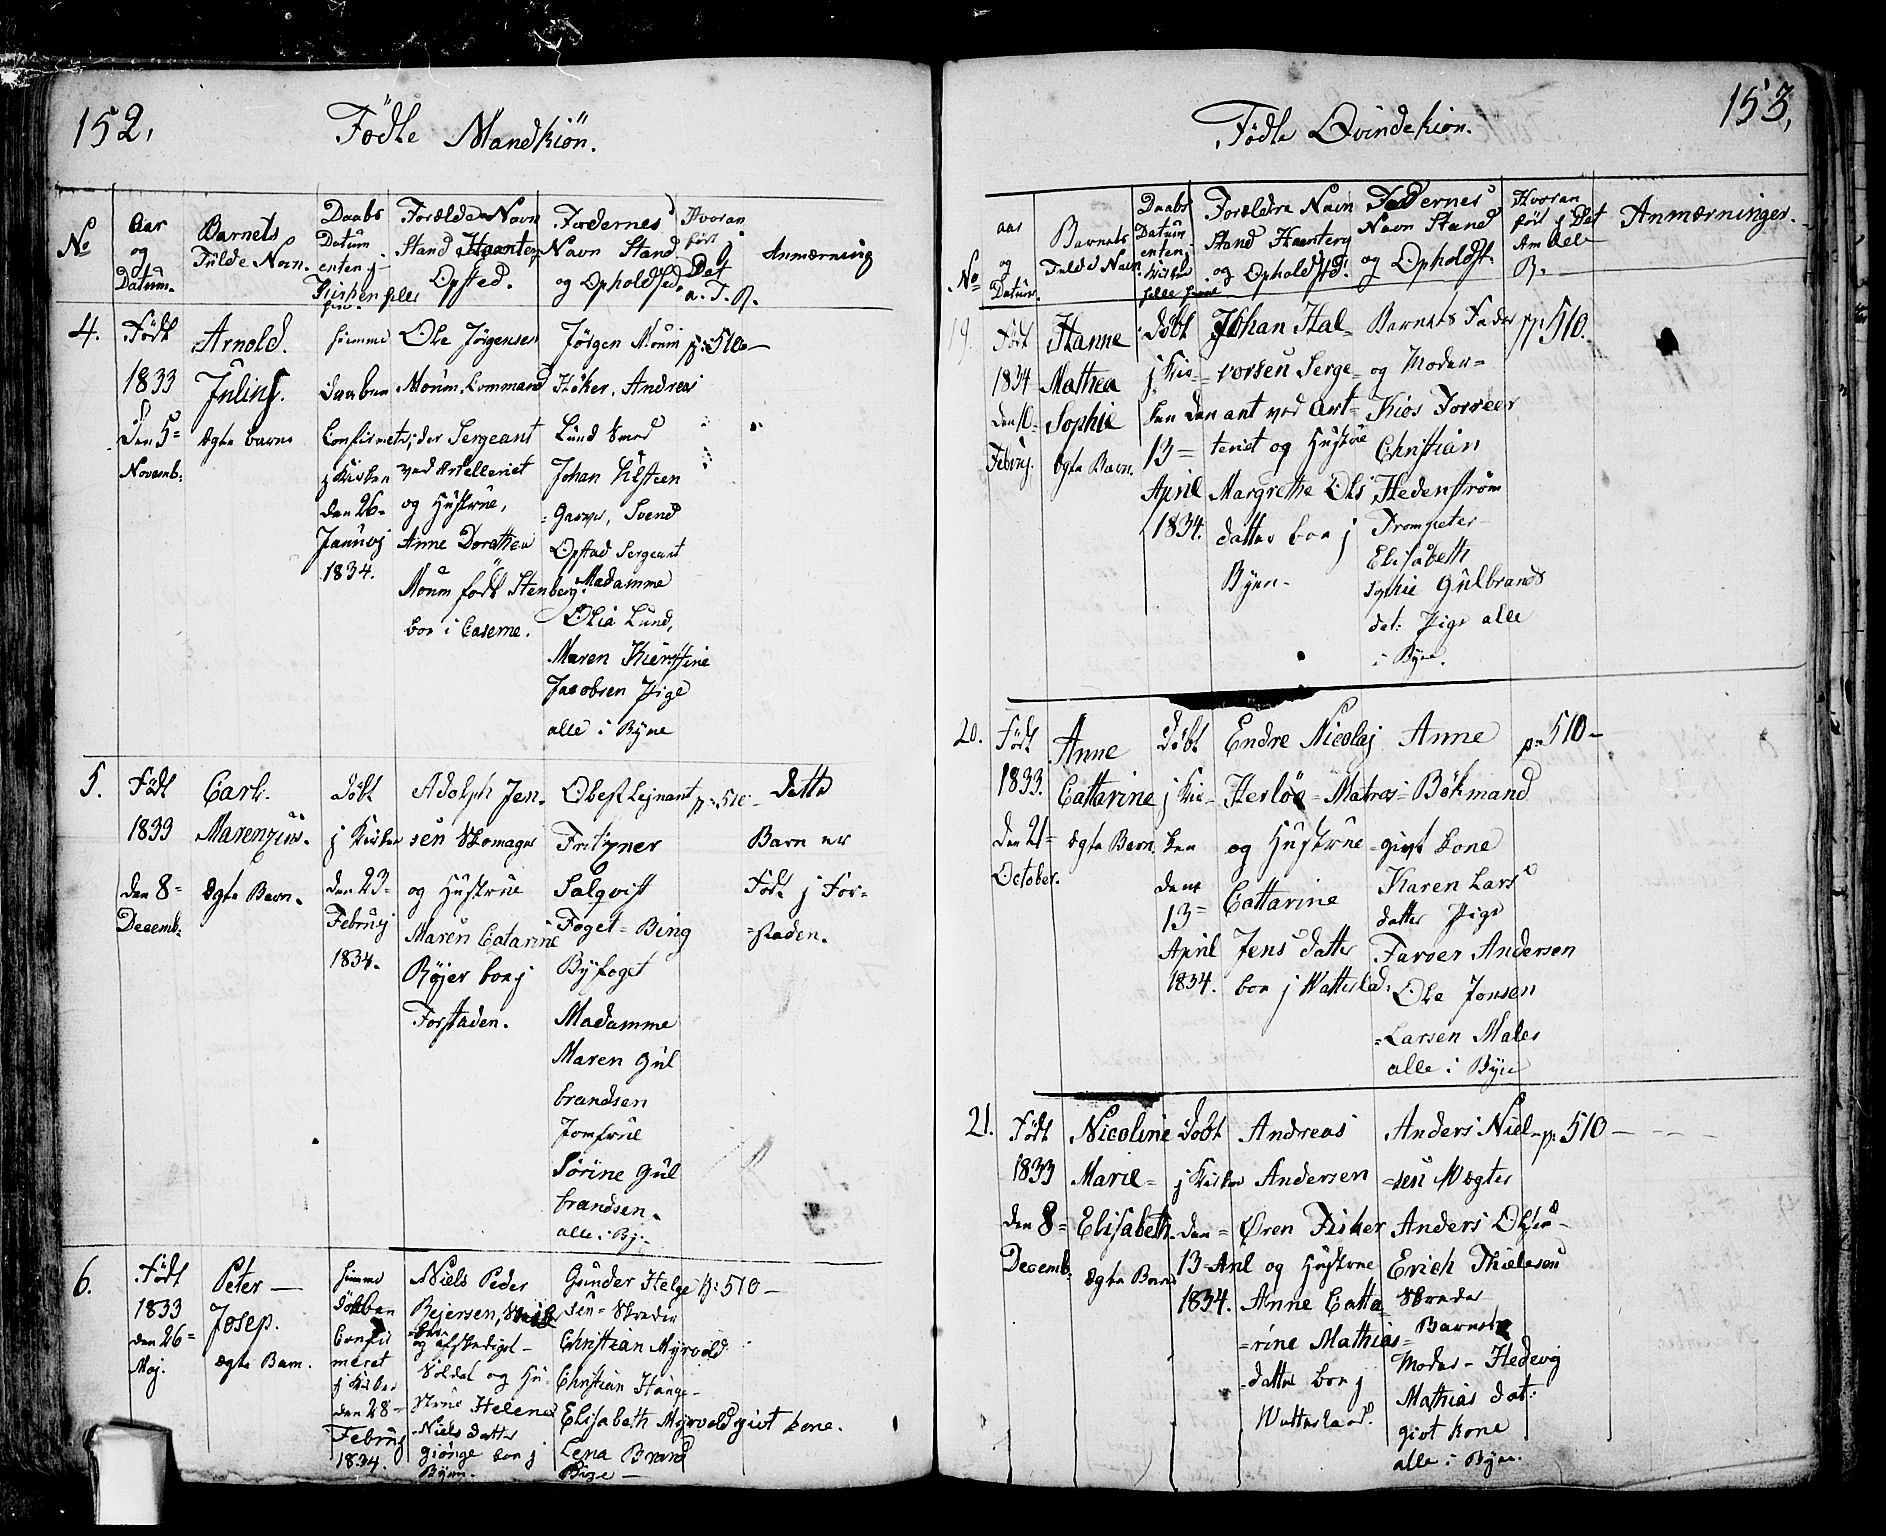 152,
Födte Mandkiön.
No
Aar
og
Datum.
Barnets
Fulde Navn.
Daabs
Datum
enten j
Kirken heller
Forældre Navn
Stand Haanter,
Opsted.
Fordernes
Navn Stand
og Opholdsed.
Hvoran
fört
Det
a. T. R.
Anmærning
4.
Födt
1833
Den 5=
Novemb:
Arnold.
Julius.
Ægte barn
Hiemme
daaben
Confirmet
j Kirken
den 26=
Januvj
1834.
Ole Jörgensen
Moum, Command
der Sergeant
ved Artelleriet
og Hustrue,
Anne Dorathea
Moum födt Stenberg
boe i Caserne.
Jörgen Moum
Höker, Andreas
Lund Smed
Johan Kilsteen
Garver, Svend
Opstad Sergeant
Madamme
Olia Lund,
Maren Kierstine
Jacobsen Pige
alle i Byne
p:510—
5.
Födt
1833
den 8=
Decemb:
Carl.
Marenzius.
Ægte Barn.
döbt
j Kirken
den 23=
Februvj
1834.
Adolph Jen-
sen Skomager
og Hustrue
Maren Catarine
Röjer boe j
Forstaden.
Oberst Lejnant
Fritzner
Salqvist
Foget= Bing
Byfoget
Madamme
Maren Gul
brandsen
Jomfrue
Sörine Gul
brandsen.
alle i By.-
p:510-
dette
Barn er
Födt j For=
=staden.
6.
Födt
1833
den 26=
Maj.
Peter —
Josep.
Ægte Barn.
hiemme
döbben
Confir
meret
j Kirken
den 28-
Februvj
1834.
Niels Peder
Bejersen,
og afskediget-
Soldat og Hu-
strue Helene
Niels datter
giönge boe j
Byen.
Gunder Helge
sen= Skreder
Christian Myrvold
Christian Hauge-
Elisabeth Myrvold givt kone.
Lena Brand
Pige —
p:510—
153,
Födte Qvindekiön.
No
aar
og
Datum.
Barnets
Fulde Navn
Daabs
Datum
enten j
Kirken
heller hieme
Foreldre Navn
Stand Haantering
og Opholdsted.
Fadernes
Navn Stand
og Opholdst.
Hvoran
fört j Det
Am Delle
R.
Anmærninger.
19.
Födt
1834
den 10-
Februj.
Hanne
Mathea
Sophie
Ægte Barn.
döbt
j Kir=
ken den
13=
April
1834.
Johan Hal=
vorsen Serge=
ant ved Art=
teriet og Hustrue
Margrethe Ols
datter boe j
Byen-
Barnets Fader
og Moder=
Kios Forreer
Christian
Hedenström
Trompeter-
Elisabeth
Sophie Gulbrands
dat: Pige alle
i Byen.
p:510.
20.
Födt
1833.
Den 21=
October.
Anne
Cattarine
Ægte Barn.
döbt
j Kir-
ken
den
13=
April
1834.
Endre Nicolaj
Herlöe= Matros=
og Hustrue
Cattarine
Jens datter
boe j Watterlad.
Anne
Bökmand
givt kone
Karen Lars
datter Pige
Farver Andersen
Ole Jonsen
=Larsen Maler
alle i Byen
p:510-
21.
Födt
1833
den 8=
Decemb:
Nicoline
Marie=
Elisabeth.
Ægte Barn
döbt
j Kirken
den=
13-Apl
1834.
Andreas
Andersen
Ören Fisker
og Hustrue
Anne Catta
=rine Mathias=
datter boe j
Watterland.
Anders Niel-
=sen Vegter
Anders Olsen-
Erich Thielesen
Skreder
Barnets
Moder- Hedevig
Mathias dat:
givt kone
alle i Byen.
p:510—